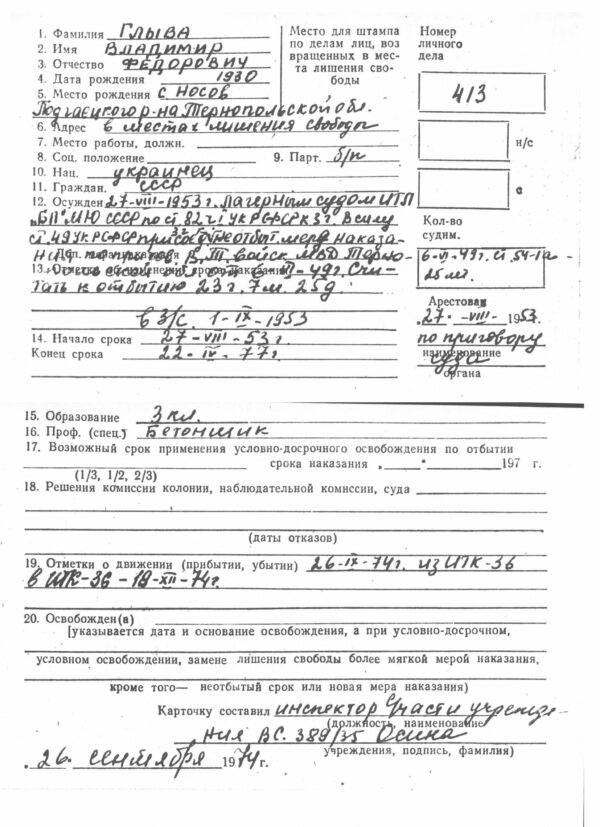 1. Фамилия ГЛЫВА
2. Имя ВЛАДИМИР
3. Отчество ФЕДОРОВИЧ
4. Дата рождения 1930
5. Место рождения с НОСОВ
Подгаецкого р-на Тернопольской обл.
6. Адрес в местах лишения свободы
7. Место работы, должн.
8. Соц. положение 9. Парт. б/п
10. Нац. украинец
11. Граждан. СССР
12. Осужден 27-VIII-1953г. Лагерным судом ИТЛ
"БП" МЮ СССР по ст. 82 ч I УК РСФСР к 3 г. В силу
ст. 49 УК РСФСР неотбыт. меры наказа-
ния по пригов. В.Т. войск МВД Терно-
13. VI-49г. Счи-
тать к отбытию 23 г. 7 м. 25 д.
в З/С. 1-IX-1953
14. Начало срока 27-VIII-53г.
Конец срока 22-IV-77г.
Место для штампа
по делам лиц, воз
вращенных в мес-
та лишения сво-
боды
Номер
личного
дела
413
н/с
с
Кол-во
судим.
6-VI-49г. ст. 54-1а-
25 лет.
Арестован
"27" -VIII- 1953.
по приговору
наименование
суда
органа
15. Образование 3 кл.
16. Проф. (спец.) Бетонщик
17. Возможный срок применения условно-досрочного освобождения по отбытии
срока наказания „ " 197 г.
(1/3, 1/2, 2/3)
18. Решения комиссии колонии, наблюдательной комиссии, суда
(даты отказов)
19. Отметки о движении (прибытии, убытии) 26-IX-74г. из ИТК-36
в ИТК-36 - 19-XII-74г.
20. Освобожден(а)
[указывается дата и основание освобождения, а при условно-досрочном,
условном освобождении, замене лишения свободы более мягкой мерой наказания,
кроме того— неотбытый срок или новая мера наказания)
Карточку составил инспектор части учрежде-
(должность, наименование
ния ВС. 389/35 Осина
учреждения, подпись, фамилия)
„26" сентября 1974 г.